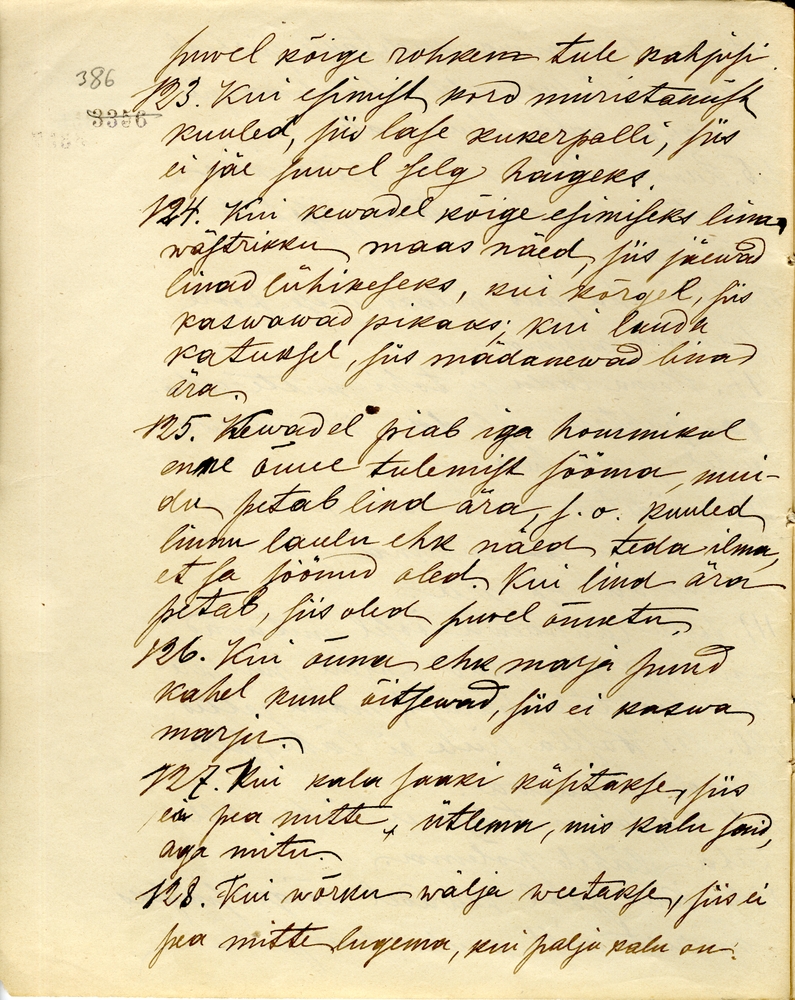 suwel kõige rohkem tule kahjusi.
386
123. Kui esimist kord müristamist
3356
kuuled, siis lase kukerpalli, siis
ei jäe suwel selg haigeks.
124. Kui kewadel kõige esimiseks lina-
wästrikku maas näed, siis jäewad
linad lühikeseks, kui kõrgel, siis
kaswawad pikaks; kui lauda
katuksel, siis mädanewad linad
ära.
125. Kewadel piab iga hommikul
enne õue tulemist sööma, mui-
du petab lind ära, s. o. kuuled
linnu laulu ehk näed teda ilma,
et sa söönud oled. Kui lind ära
petab, siis oled suwel õnnetu.
126. Kui õuna ehk marja puud
kahel kuul õitsewad, siis ei kaswa
marju.
127. Kui kala saaki küsitakse, siis
ei pea mitte ütlema, mis kalu said,
aga mitu.
128. Kui wõrku wälja weetakse, siis ei
pea mitte lugema, kui palju kalu on.